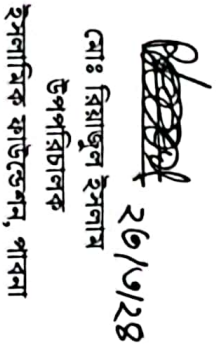 ২৬/৩/২৪
মোঃ রিয়াজুল ইসলাম
উপপরিচালক
ইসলামিক ফাউন্ডেশন, পাবনা